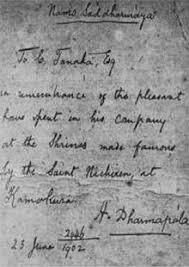 Namo Saddharmaya
To C. Tanaka, Esq
in remembrance of the pleasant
hours spent in his company
at the Shrines made famous
by the Saint Nichiren, at
Kamakura.
H. Dharmapāla
23 June 2446
1902